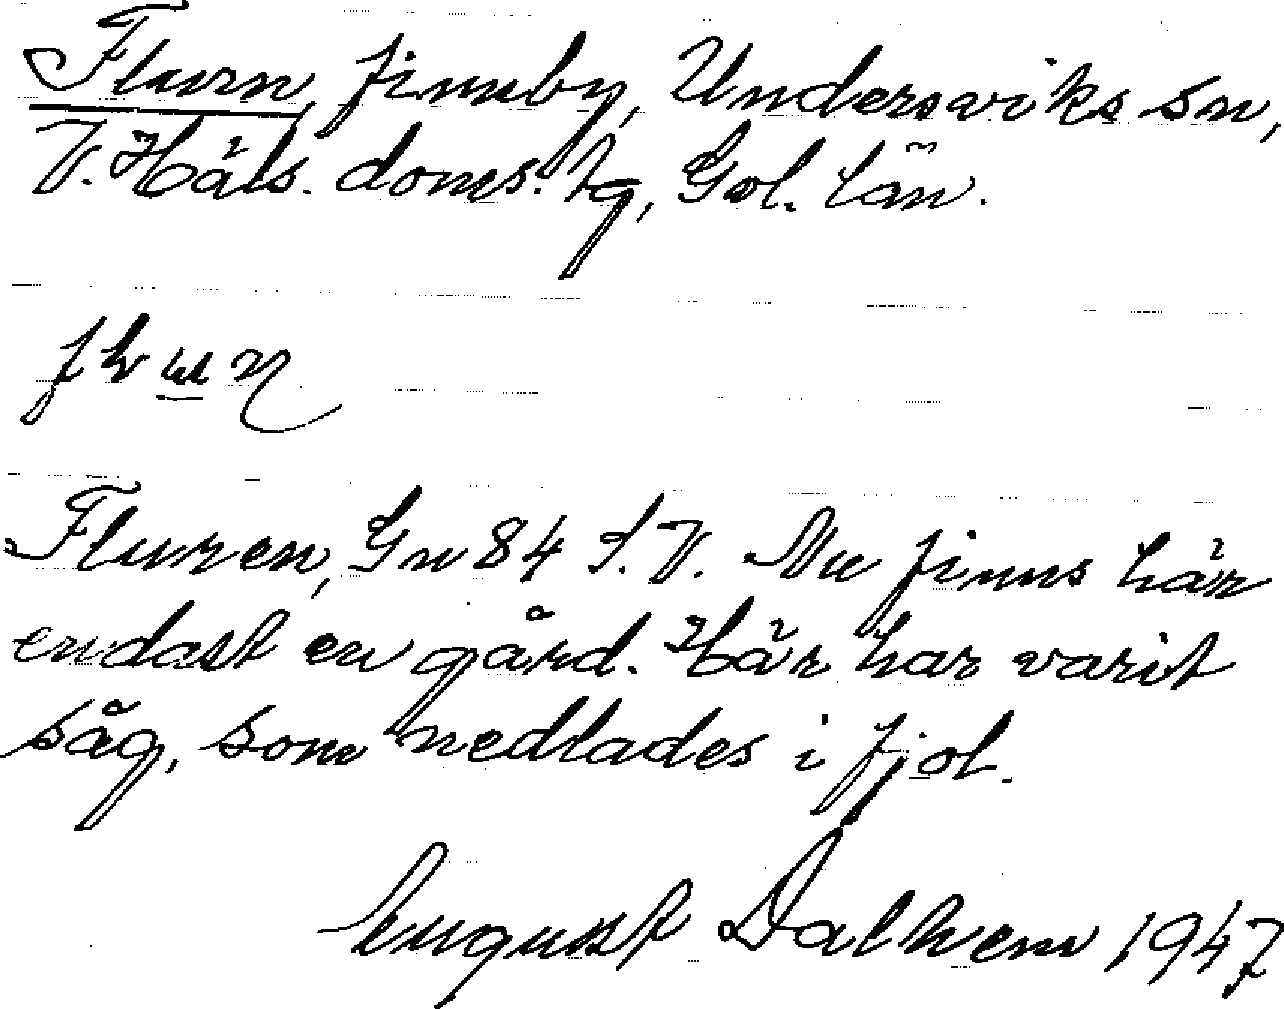 Flurn, finnby, Undersviks sn,
V. Häls. doms. tg, Gol. län.
Fluren, Gn 84 S.V. Nu finns här
endast en gård. Här har varit
såg, som nedlades i fjol.
August Dalhem 1947